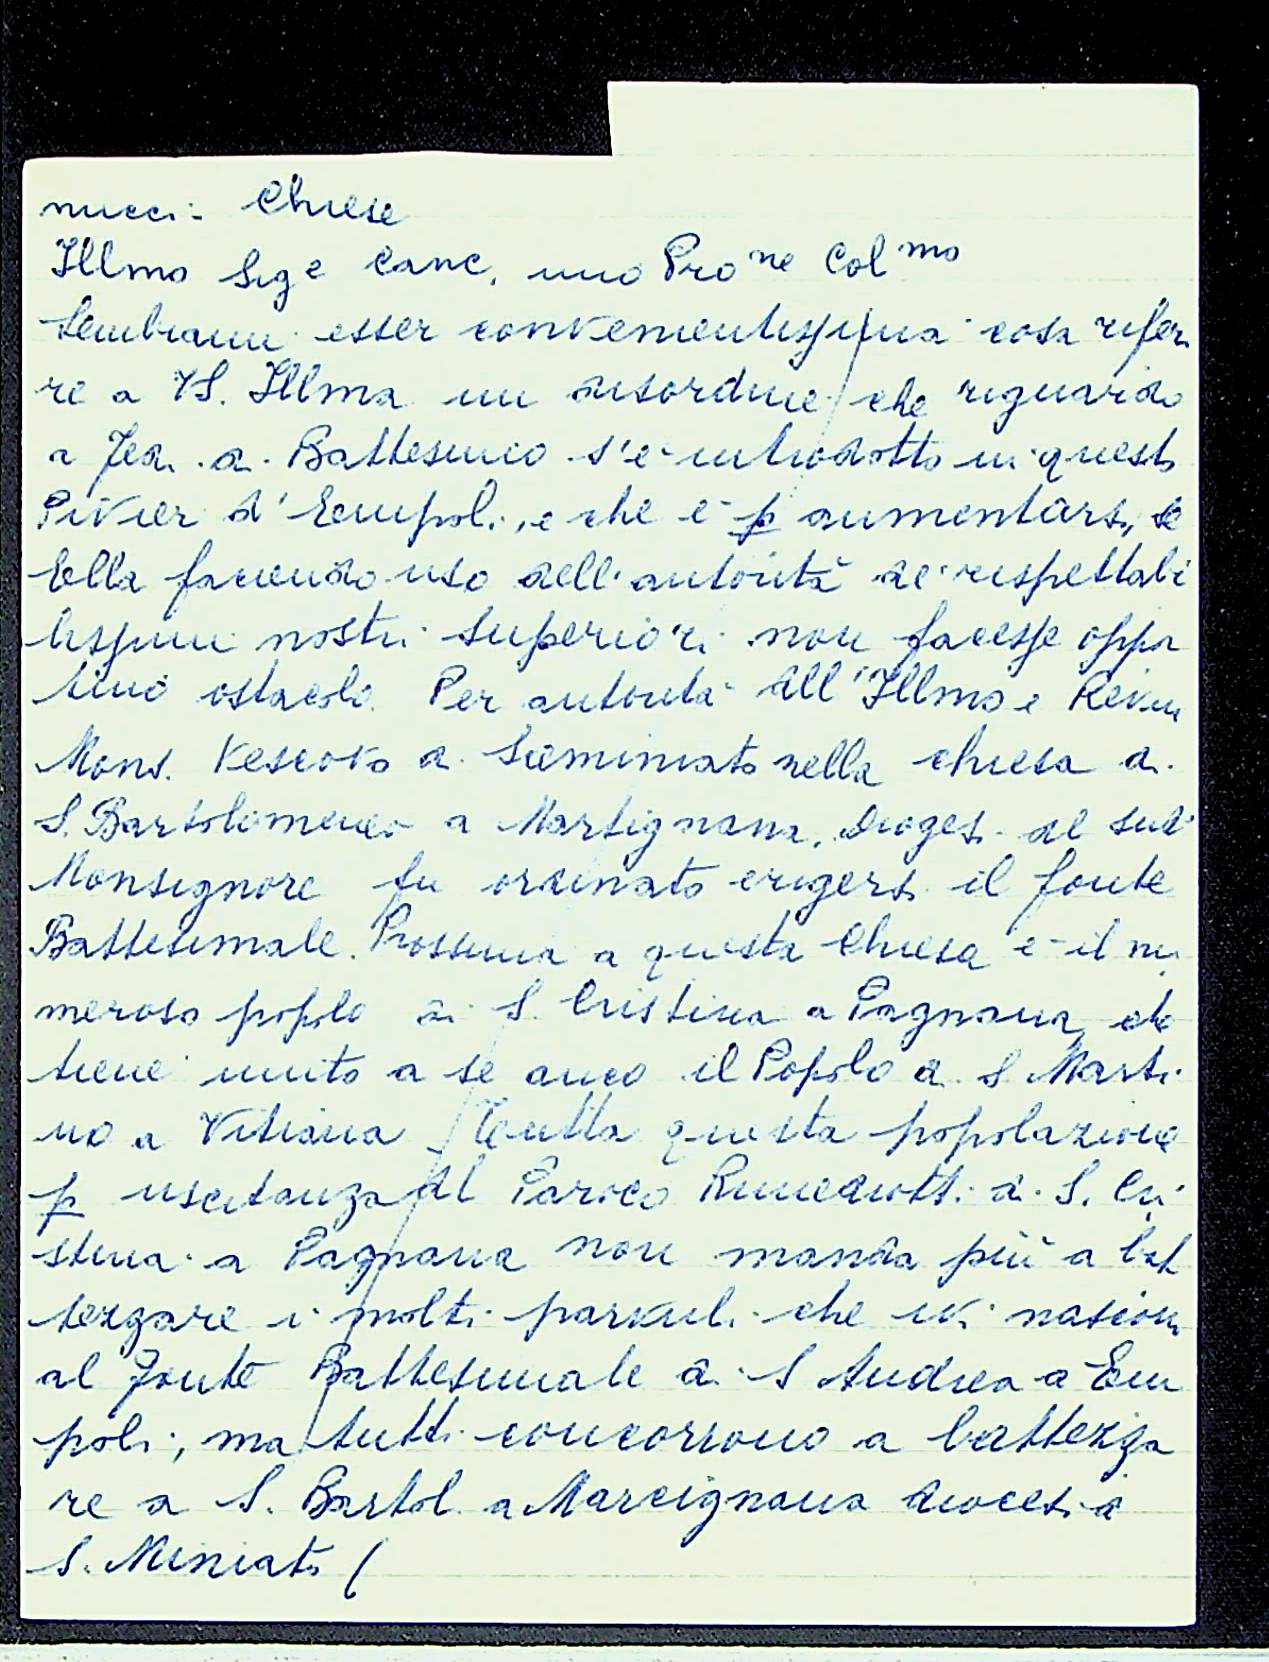 nucci - Chiese
Illmo Sig e Canc. mio Pro ne Col mo
Sembrami esser convenientissima cosa riferi
re a VS. Illma un disordine che riguardo
a Fedi di Battesimo s'è introdotto in questo
Pivier d'Empoli, e che è p aumentarsi, se
Ella facendo uso dell'autorità de' rispettabi
lissimi nostri Superiori non facesse oppor
tuno ostacolo. Per autorità dell'Illmo e Revmo
Mons. Vescovo di Saminiato nella chiesa di
S. Bartolomeo a Martignana, Dioges. del sud.
Monsignore fu ordinato erigersi il fonte
Battesimale. Prossima a questa Chiesa è il nu
meroso popolo di S. Cristina a Pagnana, che
tiene unito a se anco il Popolo di S Marti
no a Vitiana / Tutta questa popolazione
p uscitanza del Paroco Rimediotti di S. Cri
stina a Pagnana non manda più a bat
tezzare i molti parvuli che ivi nascono
al Fonte Battesimale di S Andrea a Em
poli, ma tutti concorrono a battezza
re a S. Bartol. a Marcignana diocesi di
S. Miniato (